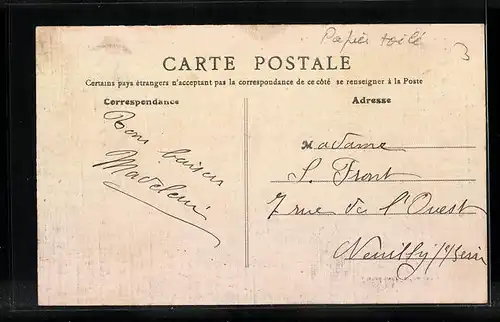 Papier toilé
3
CARTE POSTALE
Certains pays étrangers n'acceptant pas la correspondance de ce côté se renseigner à la Poste
Correspondance
Bons baisers
Madeleine
Adresse
Madame
S. Front
7 rue de l'Ouest
Neuilly s/Seine